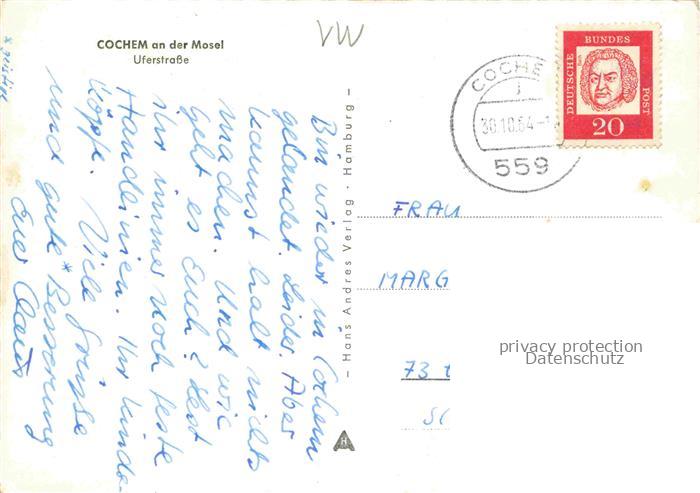 COCHEM an der Mosel
Uferstraße
VW
Bin wieder in Cochem
gelandet. Leider. Aber
kannst halt nichts
machen. Und wie
geht es Euch? Lest
ihr immer noch feste
Handlinien. Ihr Kinds-
köpfe. Viele Grüsse
und gute* Besserung
Euer Claus
* geistige
- Hans Andres Verlag · Hamburg -
COCHE
30.10.64-1
559
DEUTSCHE BUNDES POST
20
FRAU
MARG
73 t
privacy protection
Datenschutz